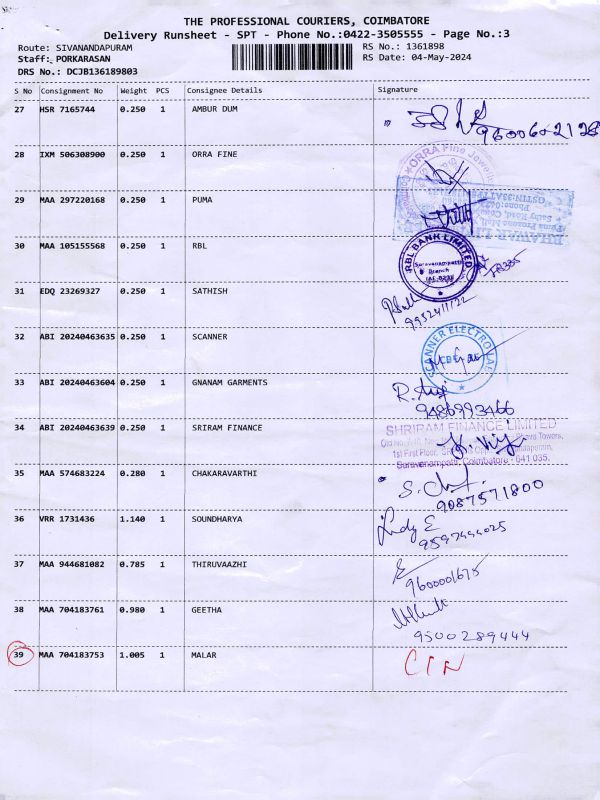 THE PROFESSIONAL COURIERS, COIMBATORE
Delivery Runsheet - SPT - Phone No.:0422-3505555 - Page No.:3
Route: SIVANANDAPURAM RS No.: 1361898
Staff: PORKARASAN RS Date: 04-May-2024
DRS No.: DCJB136189803
S No Consignment No Weight PCS Consignee Details Signature
27 HSR 7165744 0.250 1 AMBUR DUM 9600602128
28 IXM 506308900 0.250 1 ORRA FINE
ORRA Fine Jewellery
29 MAA 297220168 0.250 1 PUMA
30 MAA 105155568 0.250 1 RBL
RBL BANK LIMITED
Saravanampatti
Branch
31 EDQ 23269327 0.250 1 SATHISH
9952411122
32 ABI 20240463635 0.250 1 SCANNER
SCANNER ELECTRO
CBE
33 ABI 20240463604 0.250 1 GNANAM GARMENTS
9486993466
34 ABI 20240463639 0.250 1 SRIRAM FINANCE
SHRIRAM FINANCE LIMITED
1st Floor,
Saravanampatti, Coimbatore - 641 035.
35 MAA 574683224 0.280 1 CHAKARAVARTHI
9087571800
36 VRR 1731436 1.140 1 SOUNDHARYA
9597444025
37 MAA 944681082 0.785 1 THIRUVAAZHI
9600001675
38 MAA 704183761 0.980 1 GEETHA
9500289444
39 MAA 704183753 1.005 1 MALAR CIN